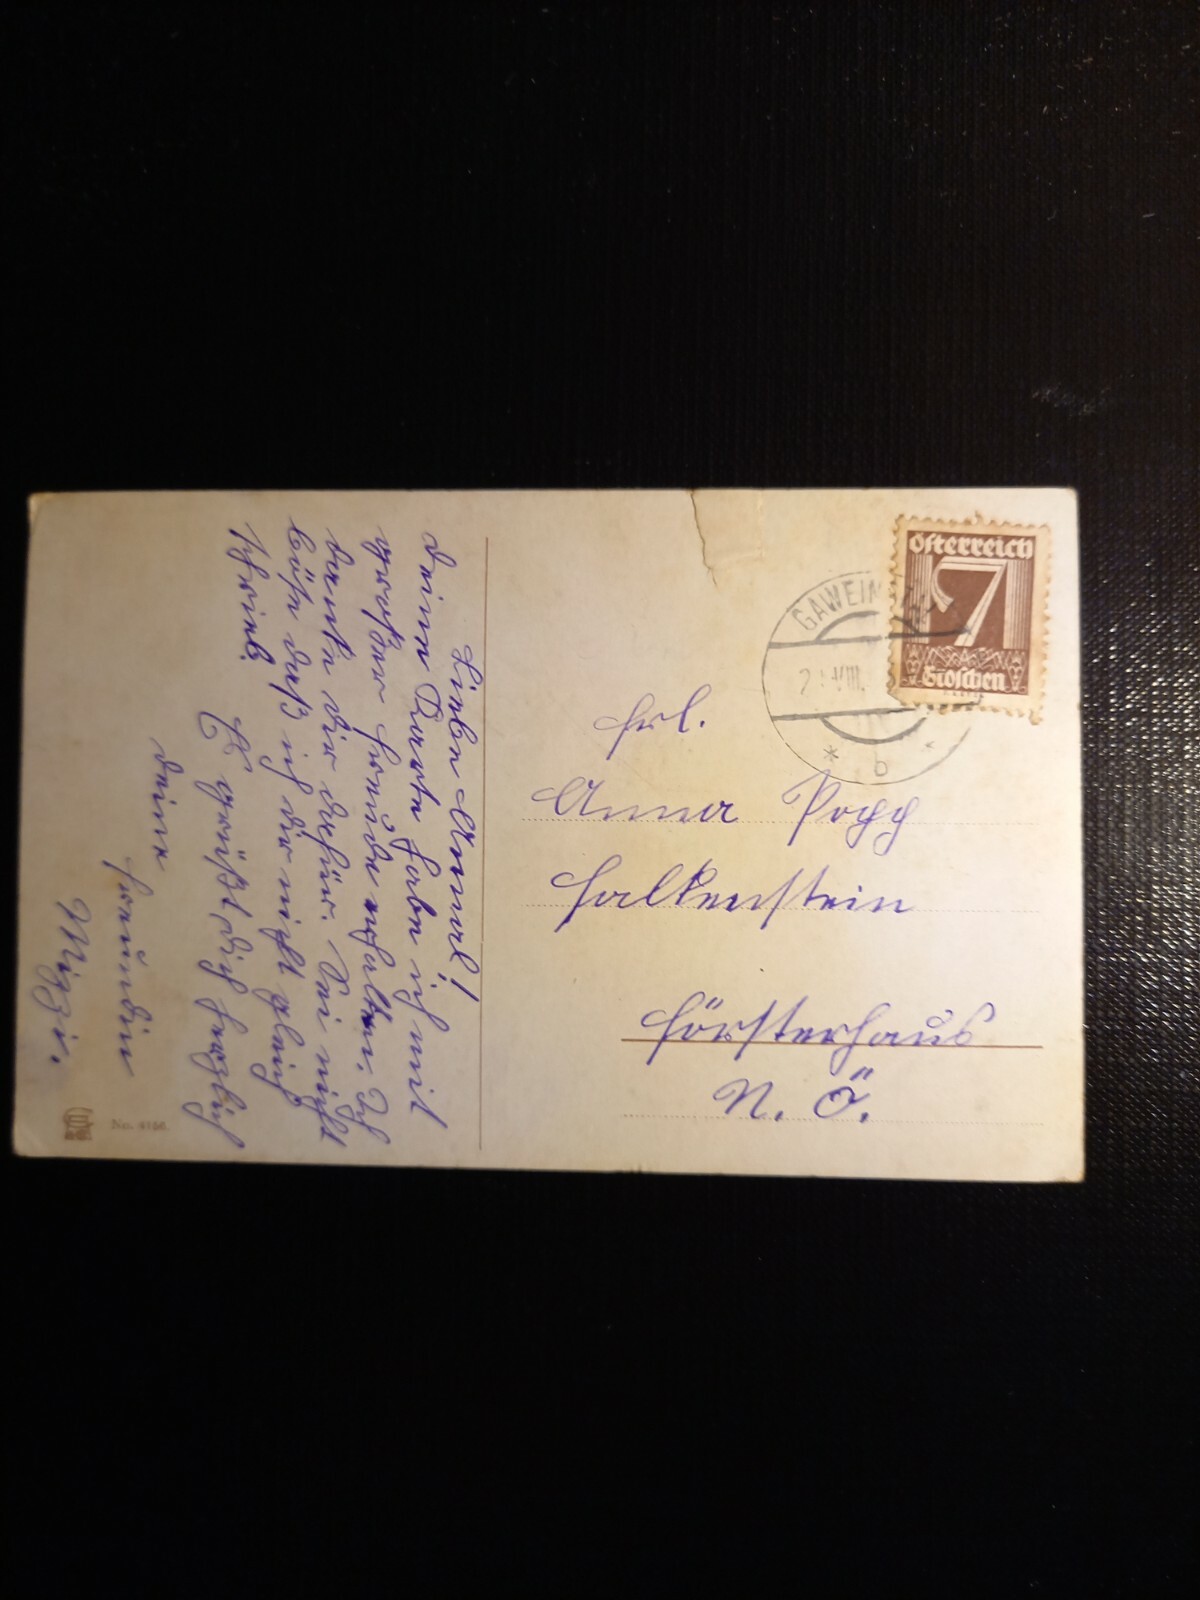 Liebe Annerl!
Deine Karte habe ich mit
großer Freude erhalten. Ich
danke dir dafür. Sei nicht
böse daß ich dir nicht gleich
schrieb.
Es grüßt dich herzlich
deine
Freundin
Mizzi.
No. 4156.
Österreich
7
Groschen
GAWEIN
VIII.
* b *
Frl.
Anna Popp
Falkenstein
Försterhaus
N. Ö.